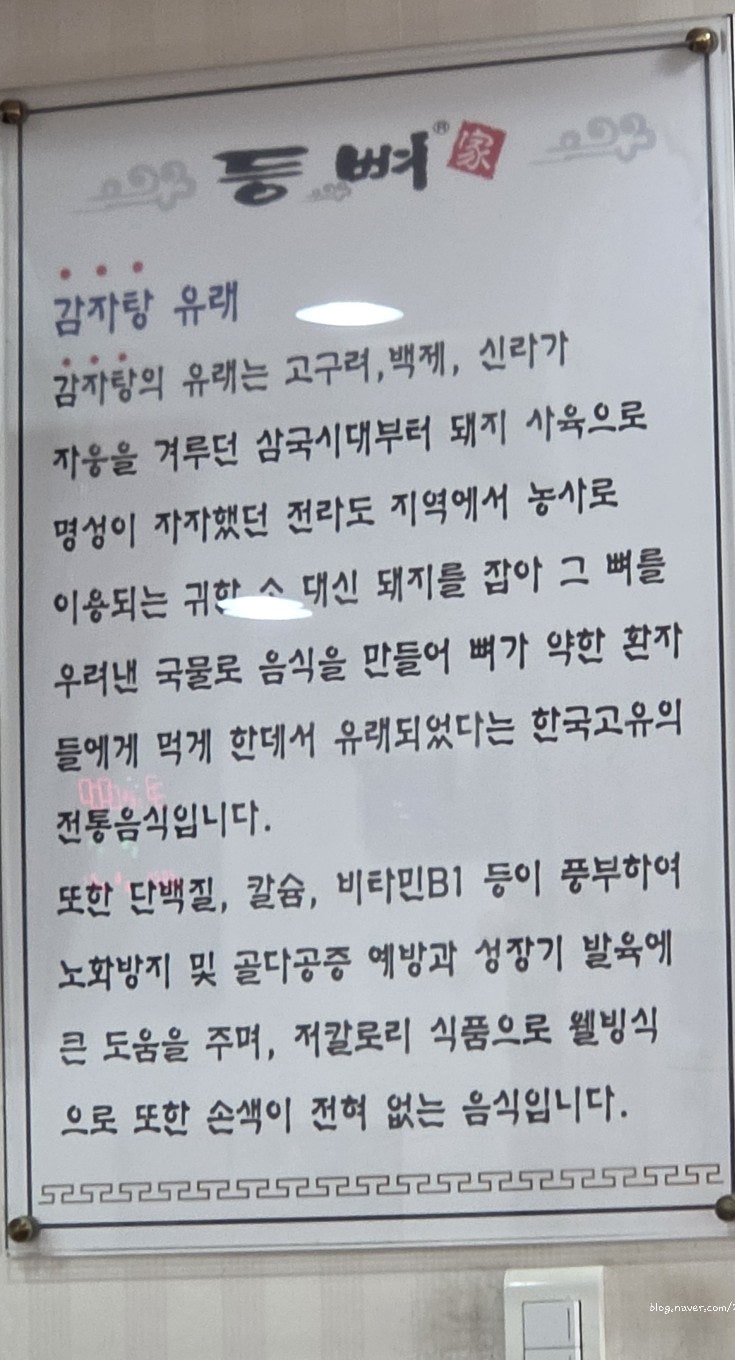 등뼈® 家
감자탕 유래
감자탕의 유래는 고구려,백제, 신라가
자웅을 겨루던 삼국시대부터 돼지 사육으로
명성이 자자했던 전라도 지역에서 농사로
이용되는 귀한 소 대신 돼지를 잡아 그 뼈를
우려낸 국물로 음식을 만들어 뼈가 약한 환자
들에게 먹게 한데서 유래되었다는 한국고유의
전통음식입니다.
또한 단백질, 칼슘, 비타민B1 등이 풍부하여
노화방지 및 골다공증 예방과 성장기 발육에
큰 도움을 주며, 저칼로리 식품으로 웰빙식
으로 또한 손색이 전혀 없는 음식입니다.
blog.naver.com/